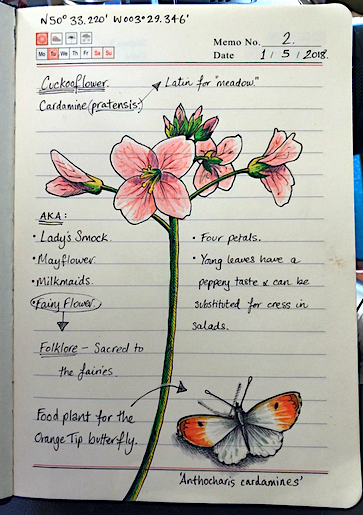 N50° 33.220' W003° 29.346'
Memo No. 2.
Mo Tu We Th Fr Sa Su
Date 1 / 5 / 2018.
Cuckooflower.
Latin for "meadow."
Cardamine (pratensis.)
AKA:
• Lady's Smock.
• Mayflower.
• Milkmaids.
• Fairy Flower.
• Four petals.
• Young leaves have a
peppery taste & can be
substituted for cress in
salads.
Folklore – Sacred to
the fairies.
Food plant for the
Orange Tip butterfly.
'Anthocharis cardamines'